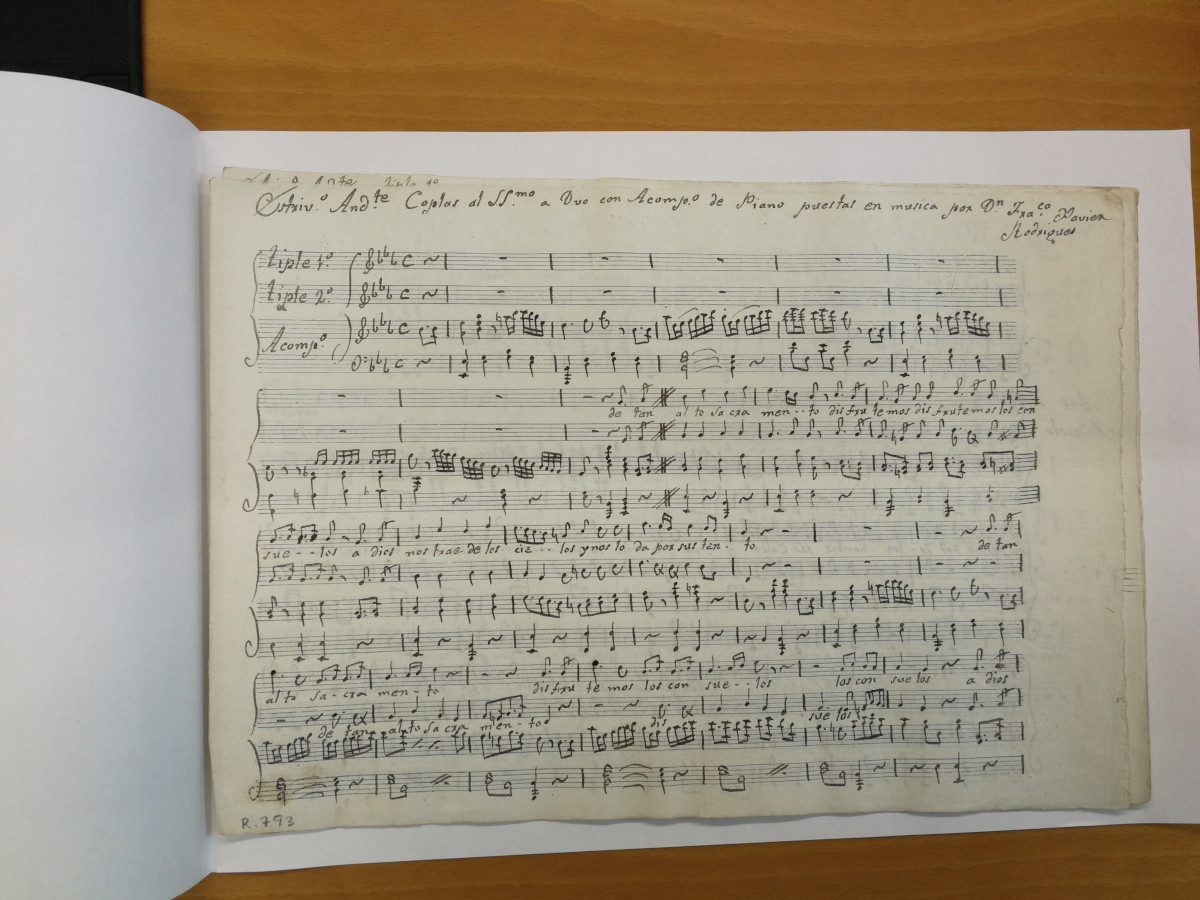 Estriv.º And.te Coplas al SS.mo a Duo con Acomp.º de Piano puestas en musica por D.n Fra.co Xavier
Rodrigues
tiple 1º
tiple 2º
Acomp.º
de tan al to sa cra men - - to disfru temos disfrutemos los con
sue - - los a dios nos trae de los cie - - los y nos lo da por sus ten - to de tan
al to sa - cra men - to disfru te mos los con sue - - los los con sue los a dios
de tan al to sa cra men - to dis sue los
R. 793